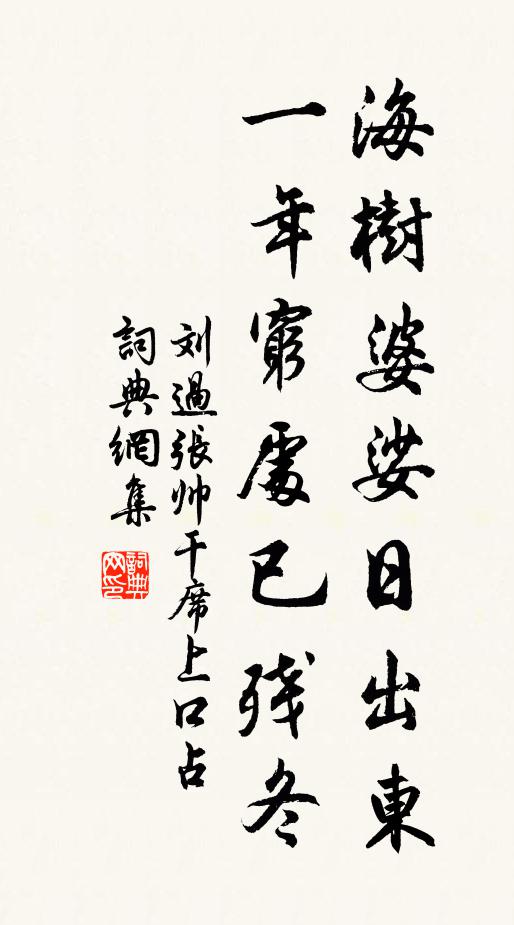 海樹婆娑日出東
一年窮處已残冬
刘過張帅干席上口占
詞典網集
詞典網印